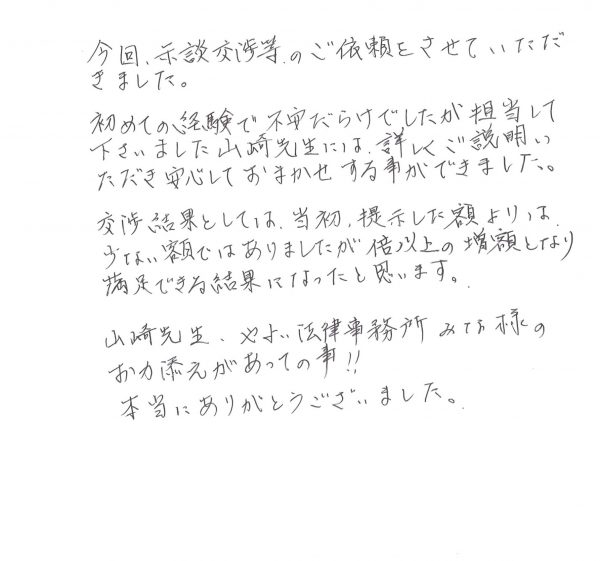 今回、示談交渉等、のご依頼をさせていただ
きました。
初めての経験で不安だらけでしたが担当して
下さいました山崎先生には、詳しくご説明い
ただき安心しておまかせする事ができました。
交渉結果としては、当初、提示した額よりは、
少ない額ではありましたが倍以上の増額となり
満足できる結果になったと思います。
山崎先生、やよい法律事務所みなさ様の
お力添えがあっての事!!
本当にありがとうございました。